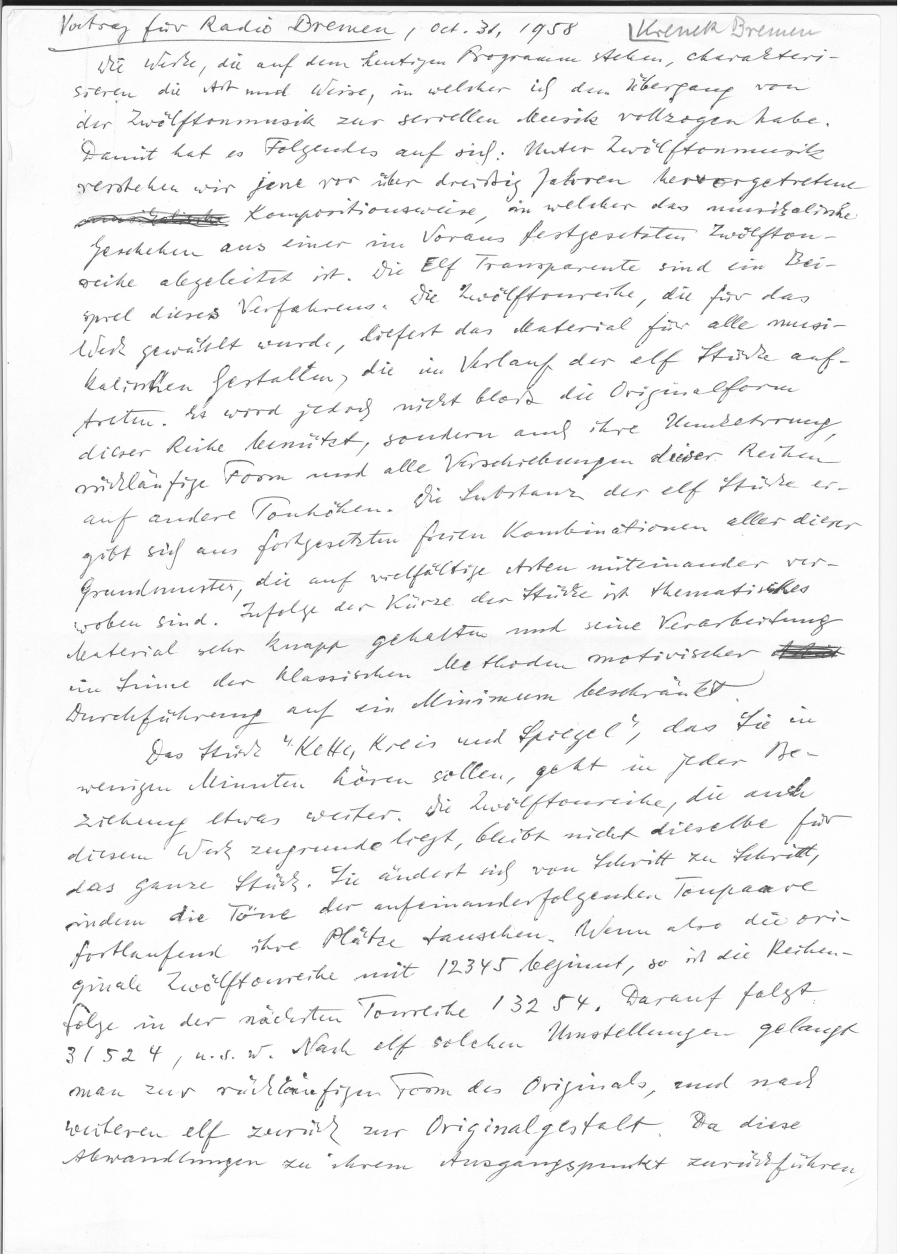 Vortrag für Radio Bremen, Oct. 31, 1958 Krenek Bremen
Die Werke, die auf dem heutigen Programm stehen, charakteri-
sieren die Art und Weise, in welcher ich den Übergang von
der Zwölftonmusik zur seriellen Musik vollzogen habe.
Damit hat es Folgendes auf sich: Unter Zwölftonmusik
verstehen wir jene vor über dreißig Jahren hervorgetretene
Kompositionsweise, in welcher das musikalische
Geschehen aus einer im Voraus festgesetzten Zwölfton-
reihe abgeleitet ist. Die Elf Transparente sind ein Bei-
spiel dieses Verfahrens. Die Zwölftonreihe, die für das
Werk gewählt wurde, liefert das Material für alle musi-
kalischen Gestalten, die im Verlauf der elf Stücke auf-
treten. Es wird jedoch nicht bloß die Originalform
dieser Reihe benützt, sondern auch ihre Umkehrung,
rückläufige Form und alle Verschiebungen dieser Reihen
auf andere Tonhöhen. Die Substanz der elf Stücke er-
gibt sich aus fortgesetzten freien Kombinationen aller dieser
Grundmuster, die auf vielfältige Arten miteinander ver-
woben sind. Zufolge der Kürze der Stücke ist thematisches
Material sehr knapp gehalten und seine Verarbeitung
im Sinne der klassischen Methoden motivischer
Durchführung auf ein Minimum beschränkt.
Das Stück "Kette, Kreis und Spiegel", das Sie in
wenigen Minuten hören sollen, geht in jeder Be-
ziehung etwas weiter. Die Zwölftonreihe, die auch
diesem Werk zugrunde liegt, bleibt nicht dieselbe für
das ganze Stück. Sie ändert sich von Schritt zu Schritt,
indem die Töne der aufeinanderfolgenden Tonpaare
fortlaufend ihre Plätze tauschen. Wenn also die ori-
ginale Zwölftonreihe mit 12345 beginnt, so ist die Reihen-
folge in der nächsten Tonreihe 13254. Darauf folgt
31524, u.s.w. Nach elf solchen Umstellungen gelangt
man zur rückläufigen Form des Originals, und nach
weiteren elf zurück zur Originalgestalt. Da diese
Abwandlungen zu ihrem Ausgangspunkt zurückführen,